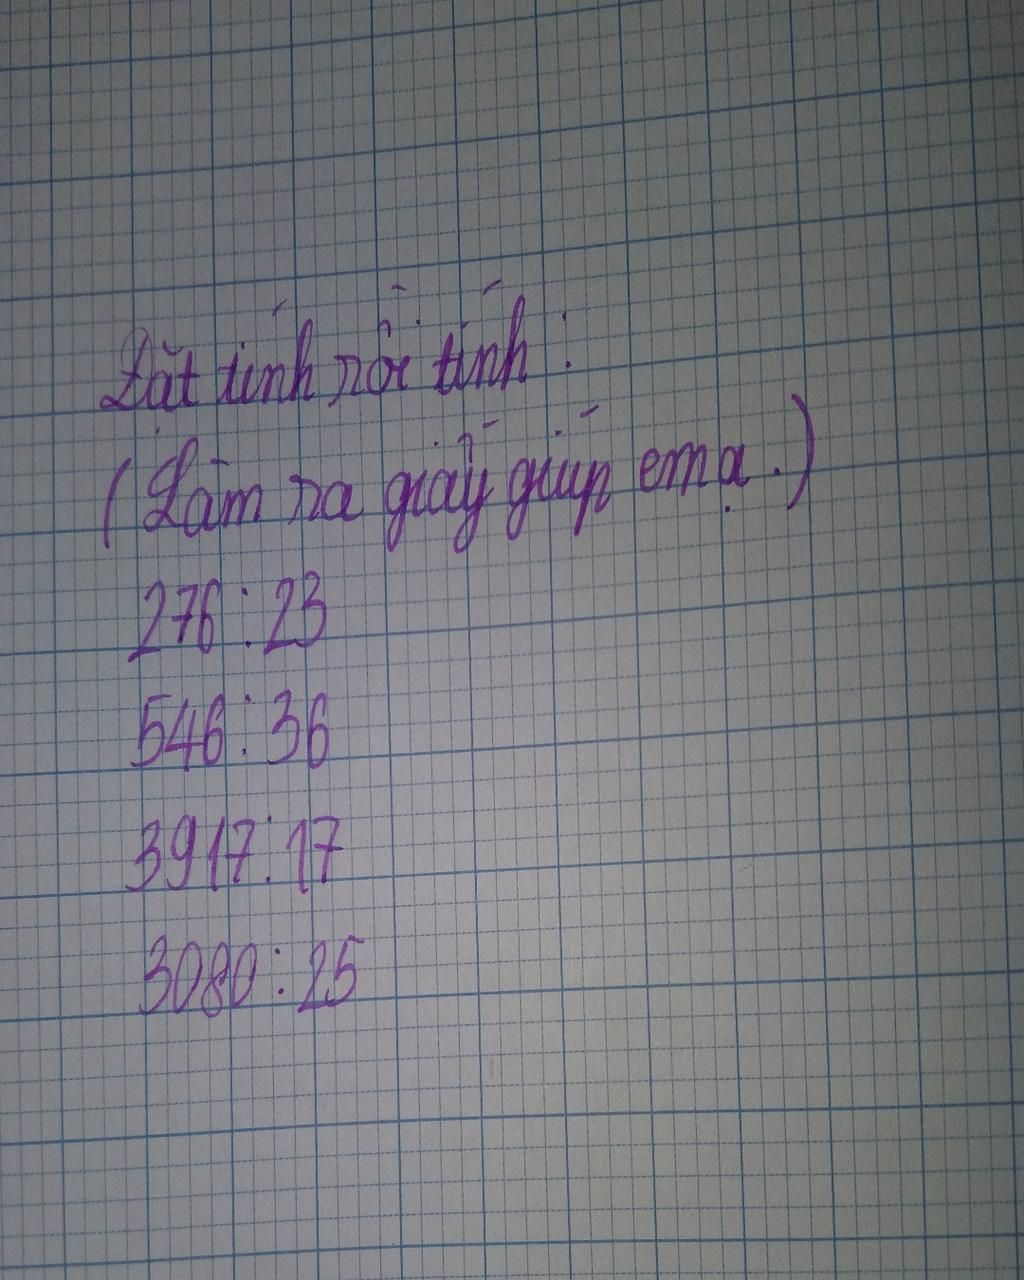 Đặt tính rồi tính :
( Làm ra giấy giúp em ạ . )
276 : 23
546 : 36
3917 : 17
3080 : 25